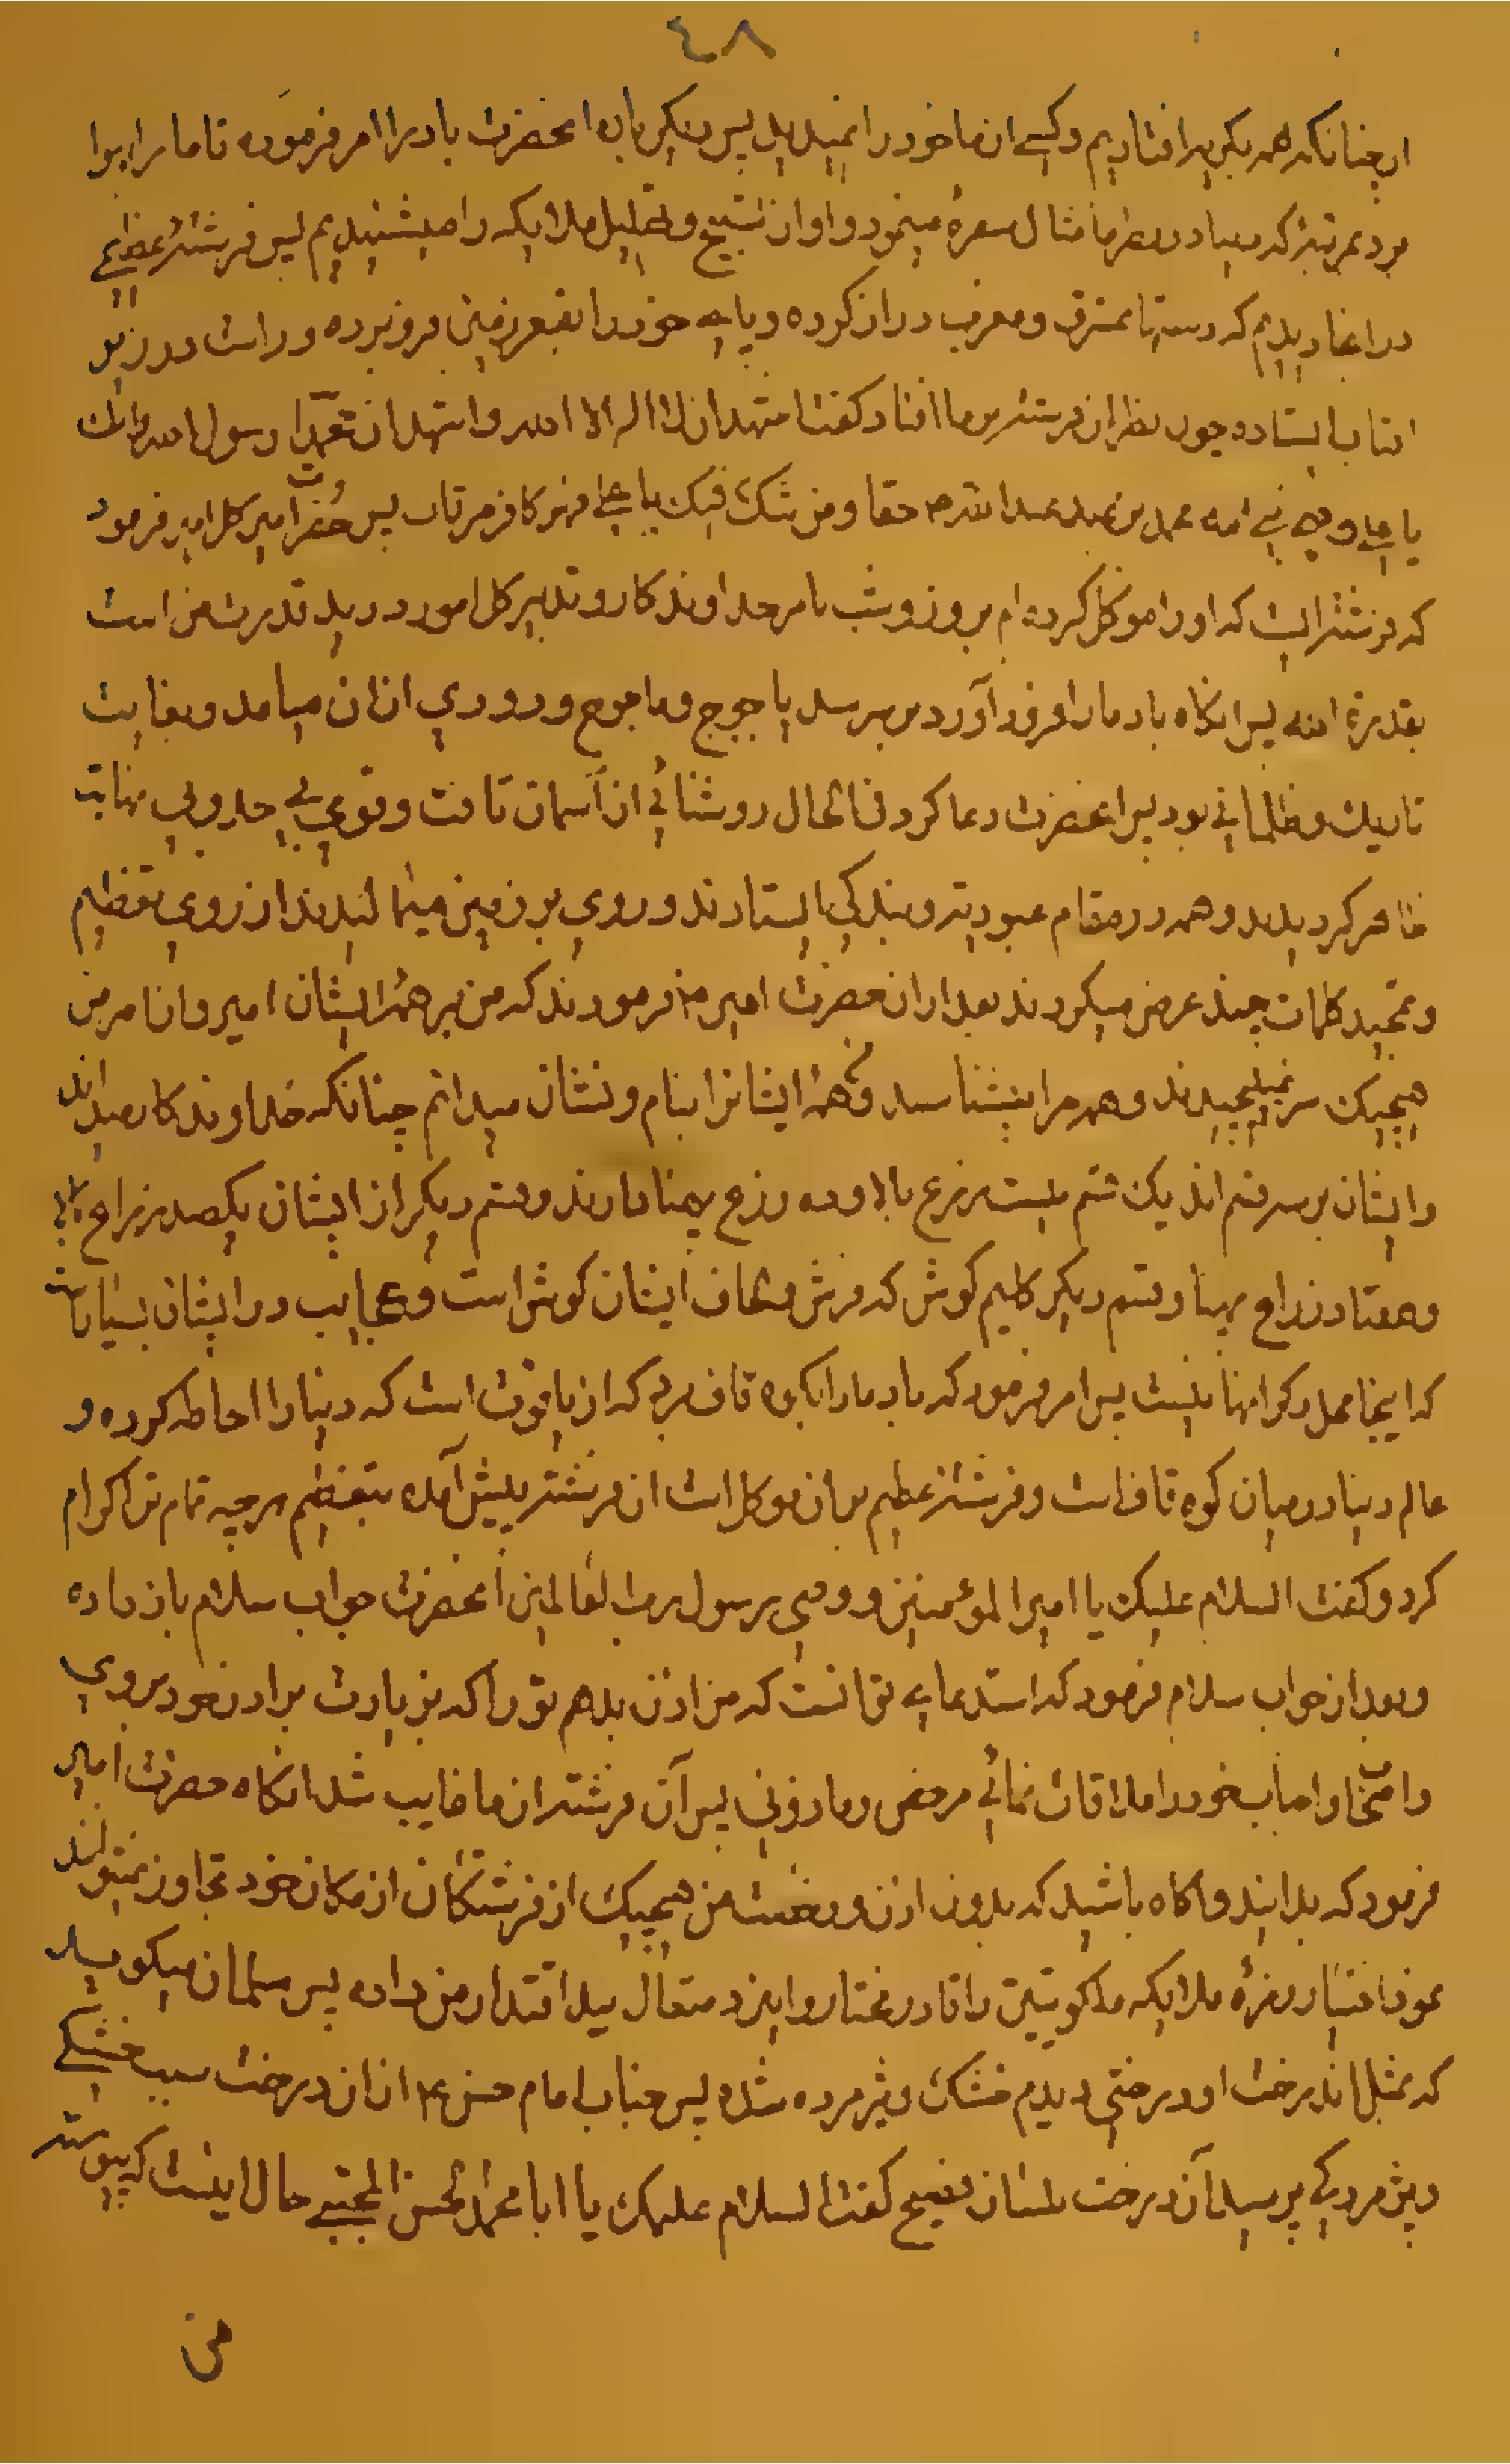 ٤٨
همه افتادیم و کسی از ما خود را نمیدید پس انحضرت باد را امر فرموده تا ما را بهوا
برد بمرتبه که دنیا در نظر ما مثال سفره مینمود و اواز تسبیح و تهلیل ملایکه را میشنیدیم پس فرشتۀ عظیمی
در انجا دیدیم که دستها بمشرق و مغرب دراز کرده و پای خود را بقعر زمین فرو برده و راست در زیر
افتاب ایستاده چون نظر ان فرشته بر ما افتاد کفت اشهد ان لا اله الا الله و اشهد ان محمدا رسول الله و انک
یا علی وصی محمد بن عبد الله حقا و من شک فیک یا علی فهو کافر مرتاب پس حضرت امیر کل امیر فرمود
که فرشته ایست که او را موکل کرده ام بروز و شب بامر خداوند کار و تدبیر کل امور در ید قدرت من است
بقدرة الله پس انکاه باد ما را فرود آورد بر سد یاجوج و ماجوج و دودی از ان میامد و بغایت
تاریک و ظلمانی بود پس انحضرت دعا کرد فی الحال روشنائی از آسمان تافت و قومی بی حد و بی نهایت
ظاهر کردیدند و همه در مقام عبودیت و بندکی بایستادند و روی بر زمین میمالیدند از روی تعظیم
و تمجید کلمات چند عرض میکردند بعد از ان حضرت امیر فرمودند که من بر همۀ ایشان امیر و از امر من
هیچیک سر نمیپیچیدند و همه مرا بشناسند و همۀ ایشانرا بنام و نشان میدانم چنانکه خداوند کار میداند
و ایشان بر سه قسم اند یک قسم بیست ذرع بالا و ده ذرع پهنا دارند و قسم دیکر از ایشان یکصد ذراع بالا
و هفتاد ذراع پهنا و قسم دیکر کلیم کوش که فرش و لحاف ایشان کوش است و عجایب در ایشان بسیار است
که اینجا محل ذکر انها نیست پس امر فرمود که باد ما را بکوه قاف برد که از یاقوت است که دنیا را احاطه کرده و
عالم دنیا در میان کوه قاف است و فرشتۀ عظیم بر ان موکل است ان فرشته پیش آمده بتعظیم هر چه تمام تر اکرام
کرد و کفت السلام علیک یا امیر المؤمنین و وصی رسول رب العالمین انحضرت جواب سلام باز داده
و بعد از جواب سلام فرمود که استدعای تو انست که من اذن بدهم تو را که بزیارت برادر خود بروی
و اصحاب و احباب خود را ملاقات نمائی مرخص و ماذونی پس آن فرشته از ما غایب شد انکاه حضرت امیر
فرمود که بدانید و آکاه باشید که بدون اذن و رخصت من هیچیک از فرشتکان از مکان خود تجاوز نمیتوانند
نمود اختیار زمرۀ ملایکه ملکوتیین را قادر مختار و ایزد متعال بید اقتدار من داده پس سلمان میکوید
که بمثل ان درخت او درختی دیدم خشک و پژمرده شده پس جناب امام حسن ع از ان درخت سبب خشکی
و پژمردکی پرسید آن درخت بلسان فصیح کفت السلام علیک یا ابا محمد الحسن المجتبی حال اینست که پیوسته